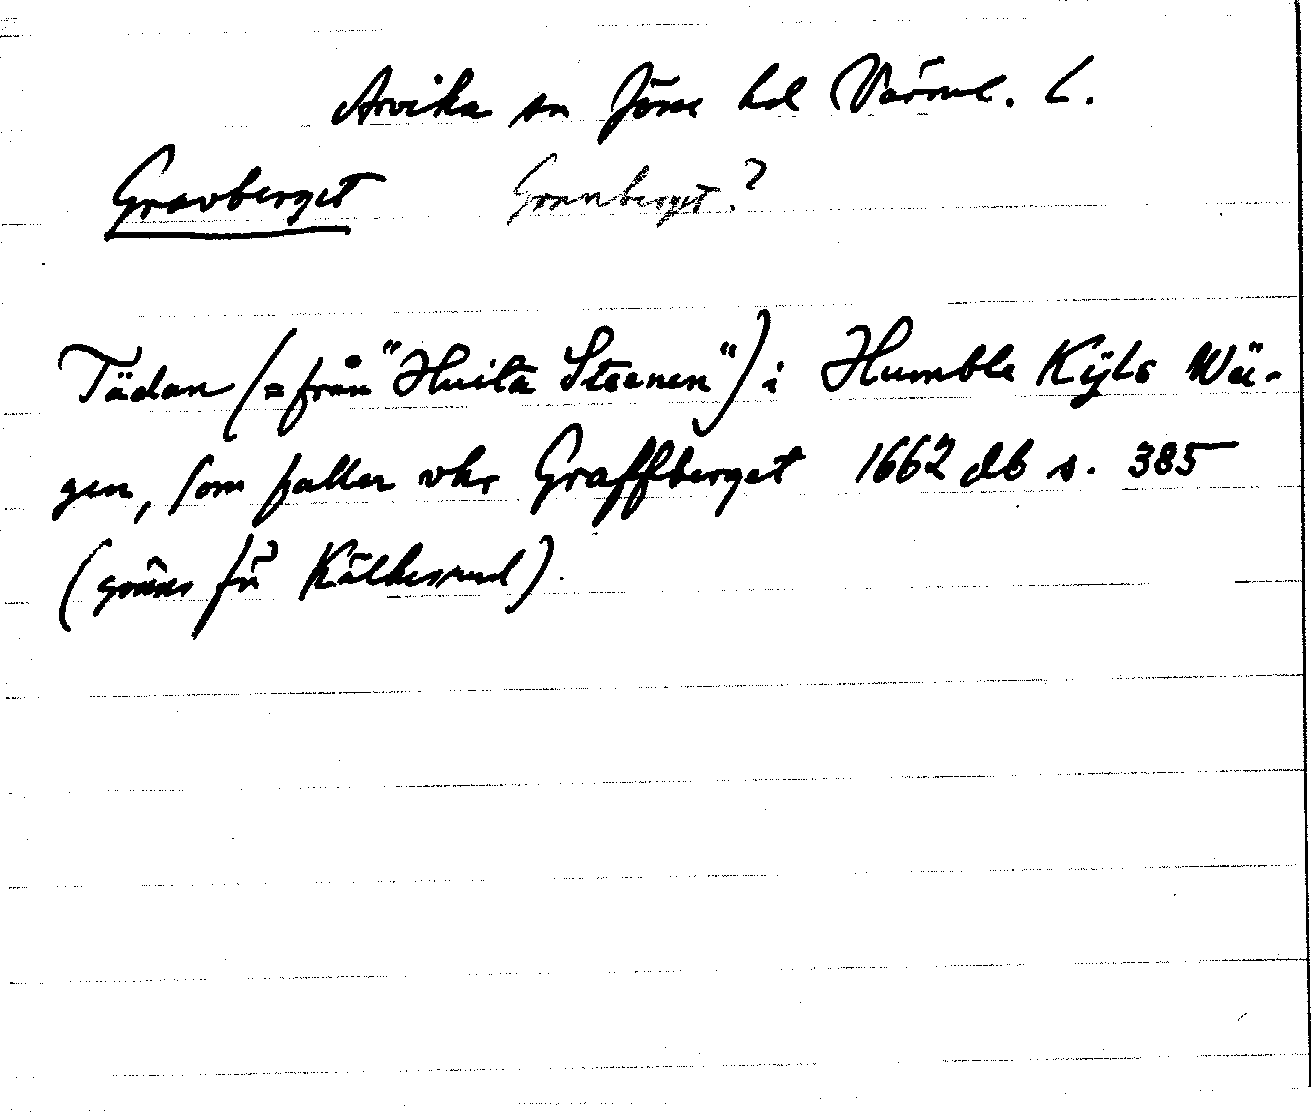 Arvika sn Jösse hd Värml. L.
Gravberget Granberget?
Tädan (= från "Huita Steenen") i Humble Kÿls Wä-
gen, som faller vhr Graffberget 1662 db s. 385
(gräns för Kälkesrud).